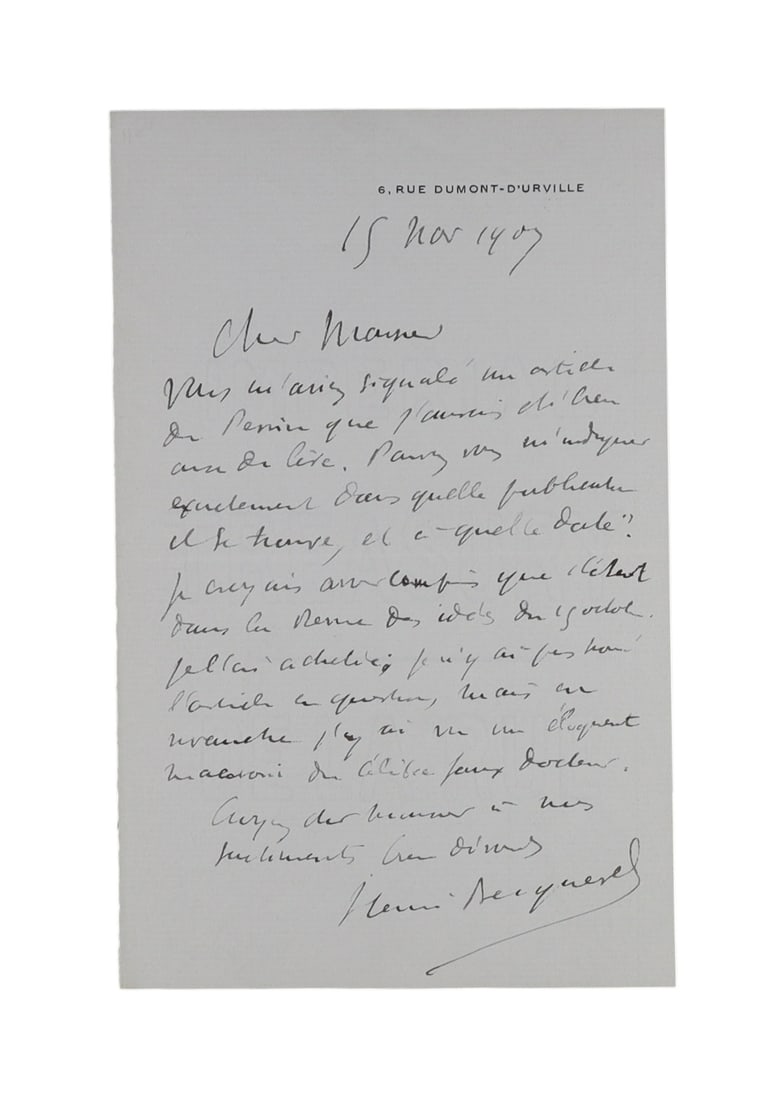 6, RUE DUMONT-D'URVILLE
15 Nov 1907
Cher Monsieur
Vous m'aviez signalé un article
de Perrin que j'aurais été bien
aise de lire. Pouvez vous m'indiquer
exactement dans quelle publication
il se trouve, et à quelle date ?
Je croyais avoir compris que c'était
dans la Revue des idées du 15 octob.
je l'ai achetée, je n'y ai pas trouvé
l'article en question, mais en
revanche j'y ai vu un éloquent
macaroni du célèbre faux docteur.
Croyez cher monsieur à mes
sentiments bien dévoués
Henri Becquerel